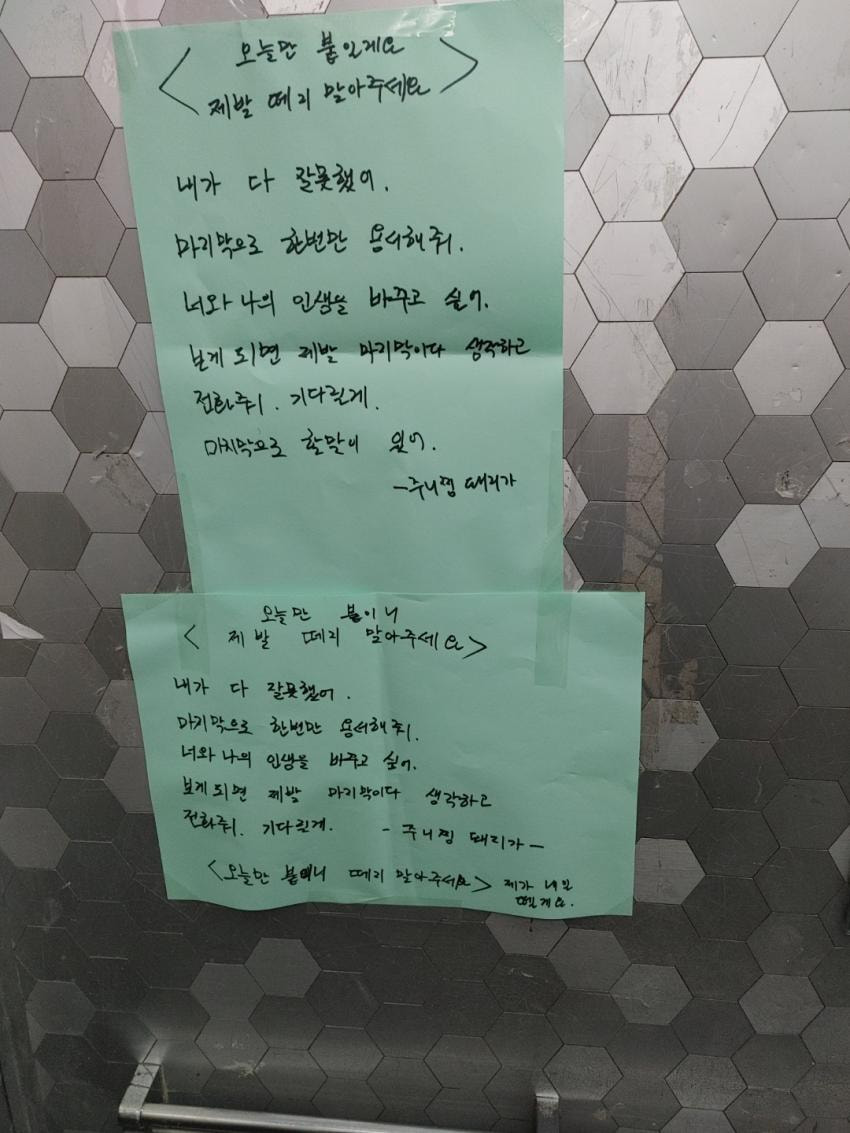 오늘만 붙일게요
제발 떼지 말아주세요
내가 다 잘못했어.
마지막으로 한번만 용서해줘.
너와 나의 인생을 바꾸고 싶어.
보게 되면 제발 마지막이다 생각하고
전화줘. 기다릴게.
마지막으로 할말이 있어.
-주니찜 때리가
오늘만 붙이니
< 제발 떼지 말아주세요 >
내가 다 잘못했어.
마지막으로 한번만 용서해줘.
너와 나의 인생을 바꾸고 싶어.
보게되면 제발 마지막이다 생각하고
전화줘. 기다릴게. - 주니찜 때리가 -
<오늘만 붙이니 떼지 말아주세요> 제가 내일
뗄게요.